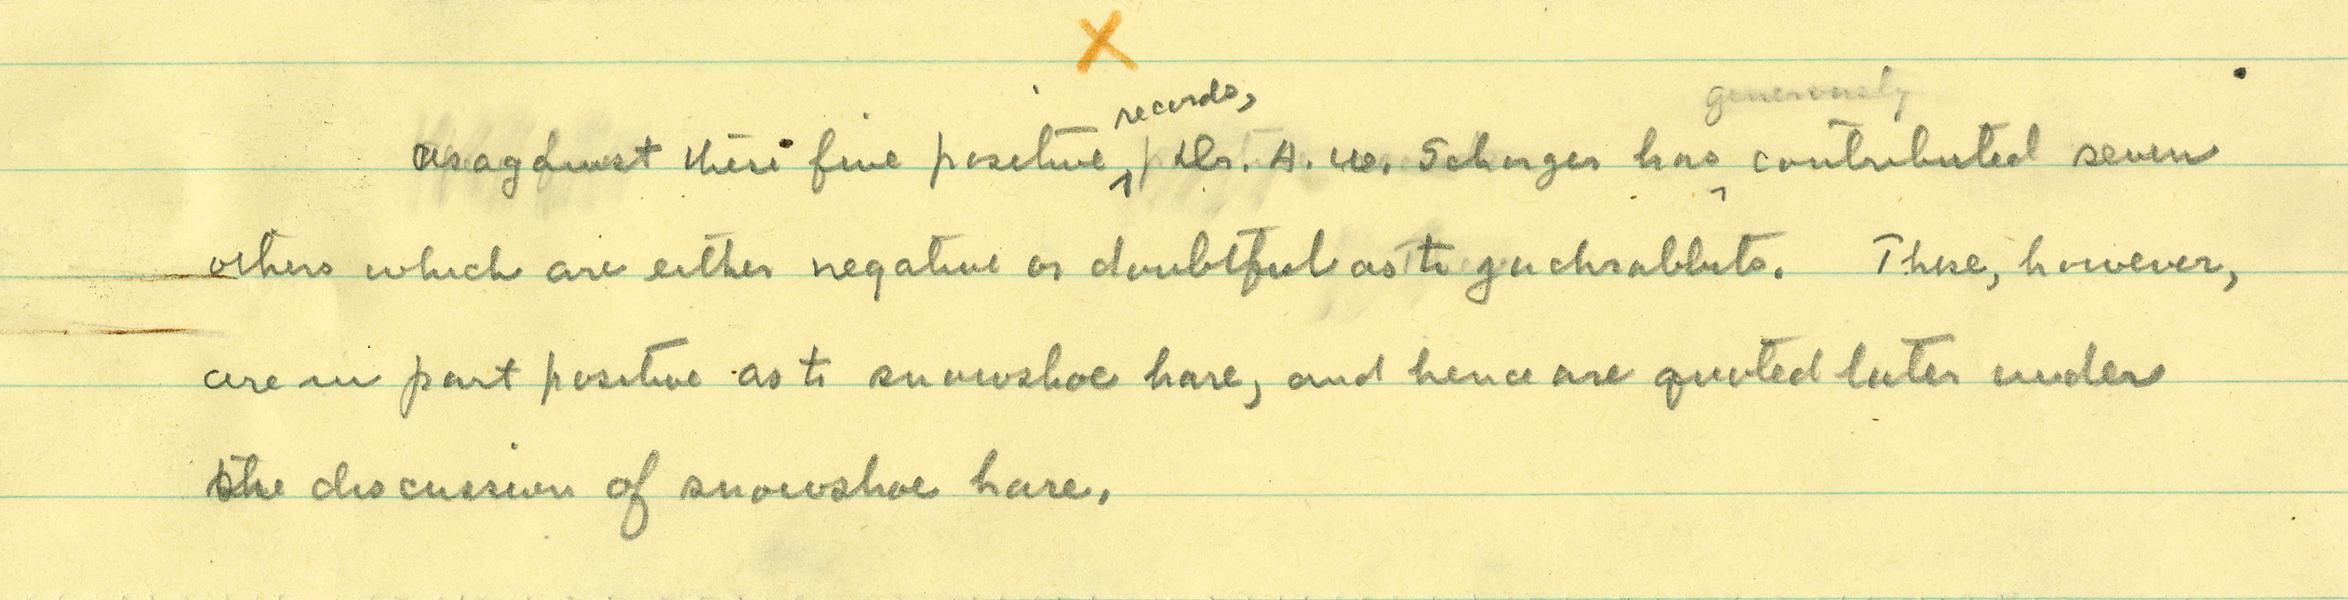 X
records, generously
As against these five positive Dr. A. W. Schorger has contributed seven
others which are either negative or doubtful as to jackrabbits. These, however,
are in part positive as to snowshoe hare, and hence are quoted later under
the discussion of snowshoe hare.